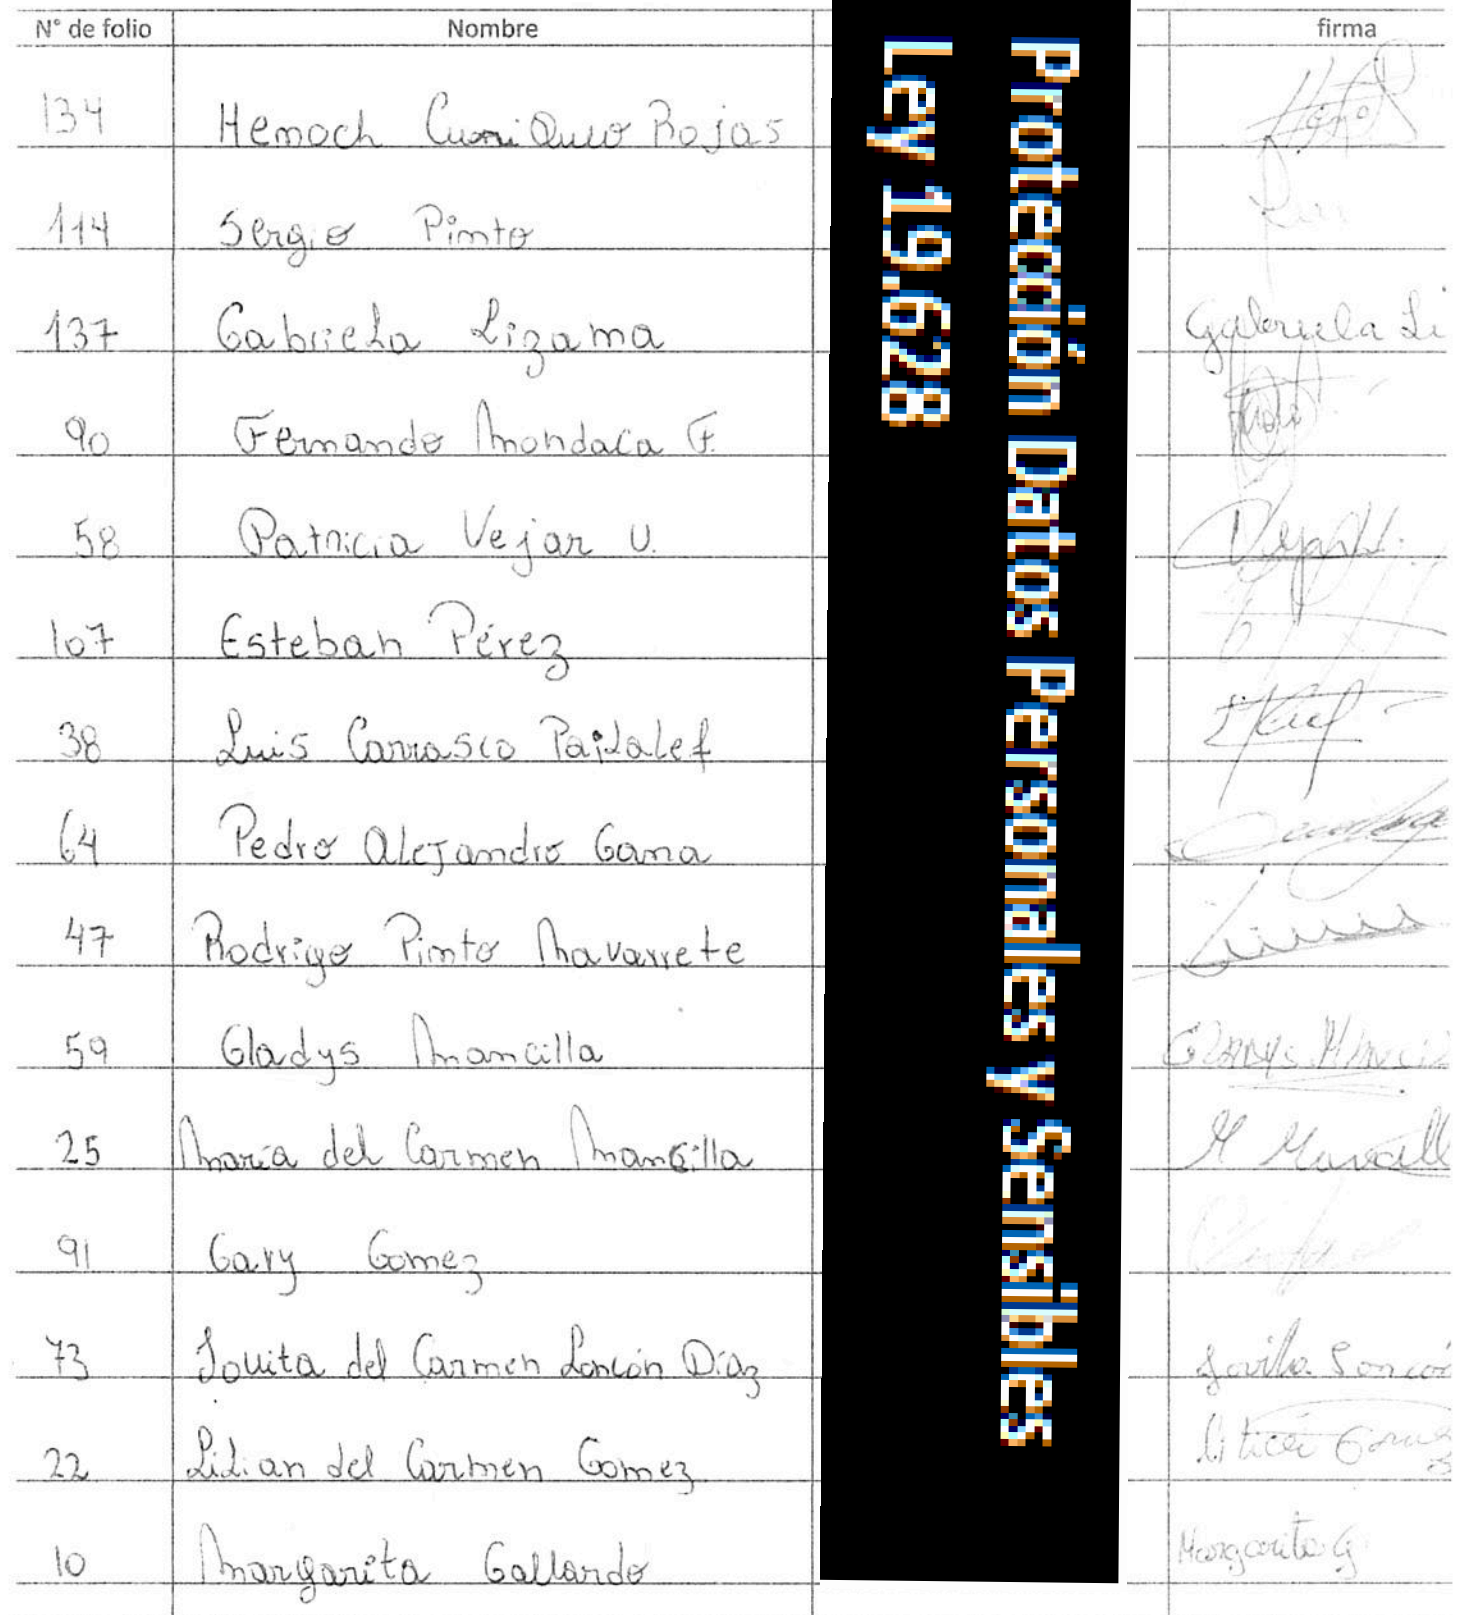 N° de folio Nombre firma
134 Henoch Curriquio Rojas
114 Sergio Pinto
137 Gabriela Lizama Gabriela Li
90 Fernando Mondaca F.
58 Patricia Vejar U.
107 Esteban Pérez
38 Luis Carrasco Pailalef
64 Pedro Alejandro Gana
47 Rodrigo Pinto Navarrete
59 Gladys Mancilla
25 María del Carmen Mancilla M Mancill
91 Gary Gomez
73 Jovita del Carmen Loncón Díaz Jovita Loncón
22 Lilian del Carmen Gomez
10 Margarita Gallardo Margarita G
Protección Datos Personales y Sensibles
Ley 19.628